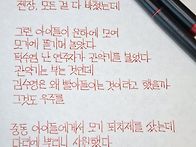 젠장, 모든 걸 다 바쳤는데
그런 아이들이 은하에 모여
모기에 물리며 놀았다
턱수염 난 연주자가 관악기를 불었다
관악기는 부는 것인데
김수영은 왜 빨아들이는 것이라고 했을까
그것도 우주를
중동 아이들에게서 모기 퇴치제를 샀는데
다리에 뿌려니 시원했다